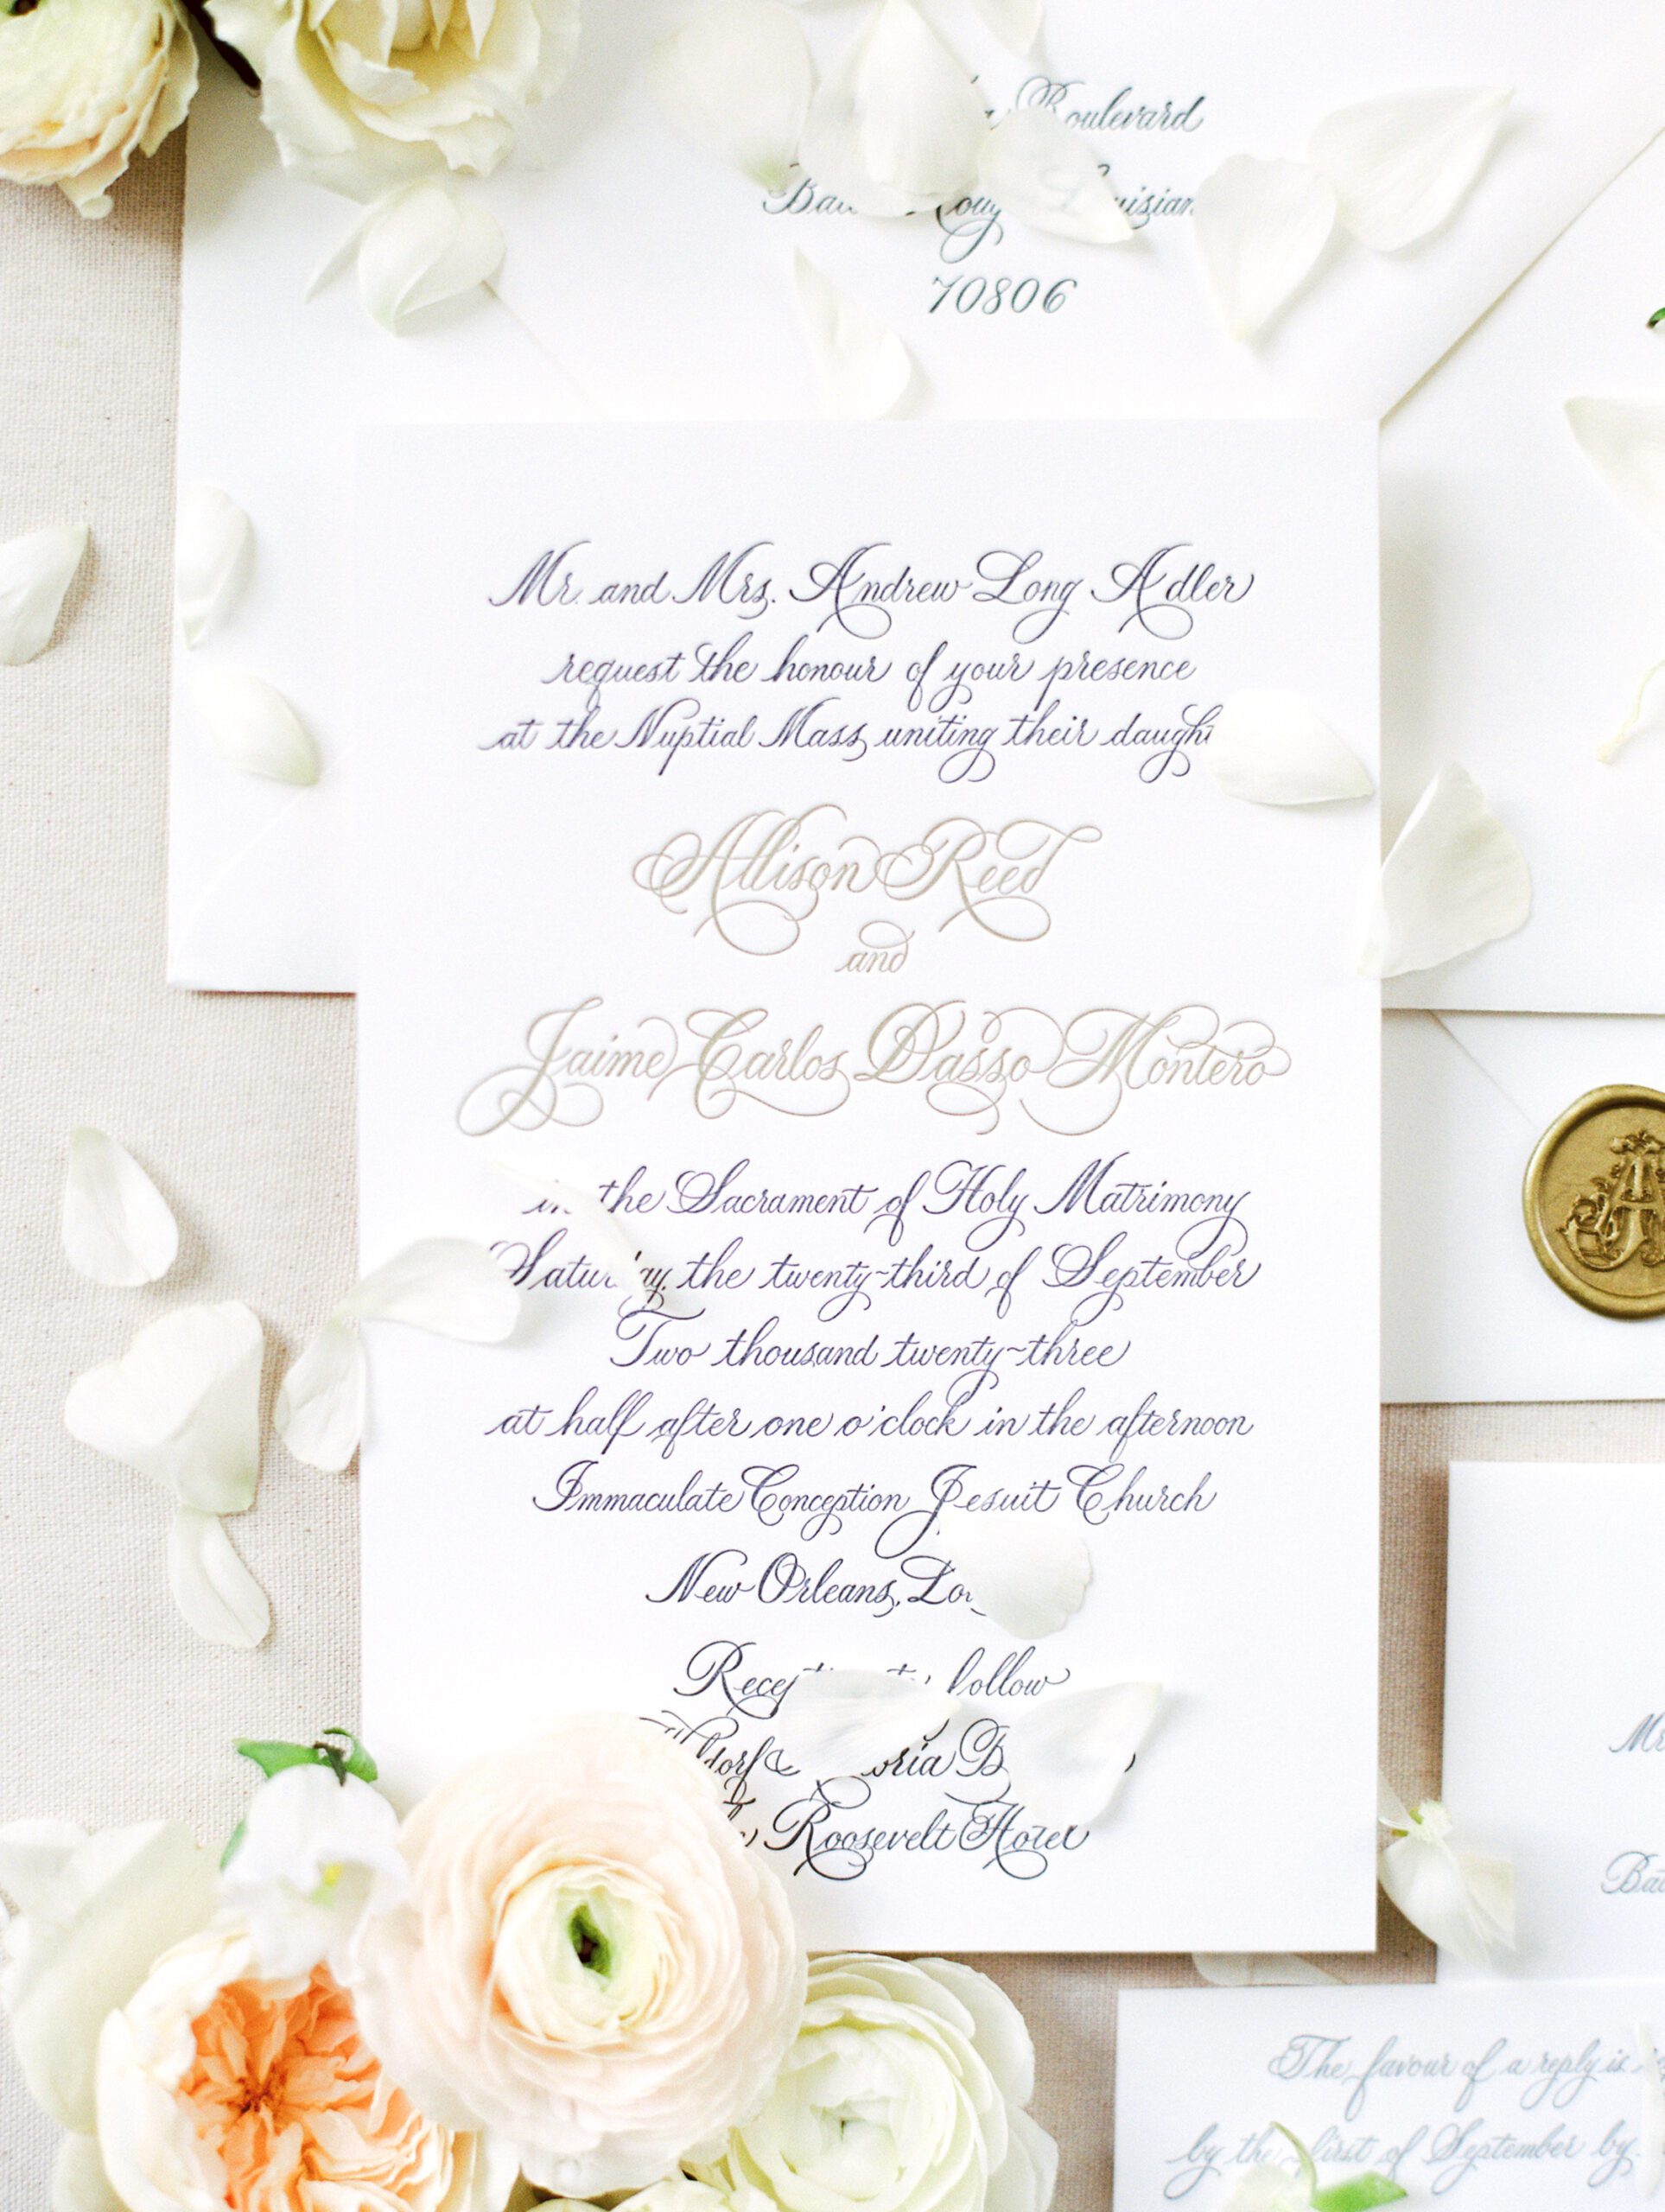 Boulevard
70806
Mr. and Mrs. Andrew Long Adler
request the honour of your presence
at the Nuptial Mass uniting their
Allison Reed
and
Jaime Carlos Dasso Montero
the Sacrament of Holy Matrimony
the twenty-third of September
Two thousand twenty-three
at half after one o'clock in the afternoon
Immaculate Conception Jesuit Church
New Orleans,
follow
Roosevelt Hotel
The favour of a reply is
by the first of September by